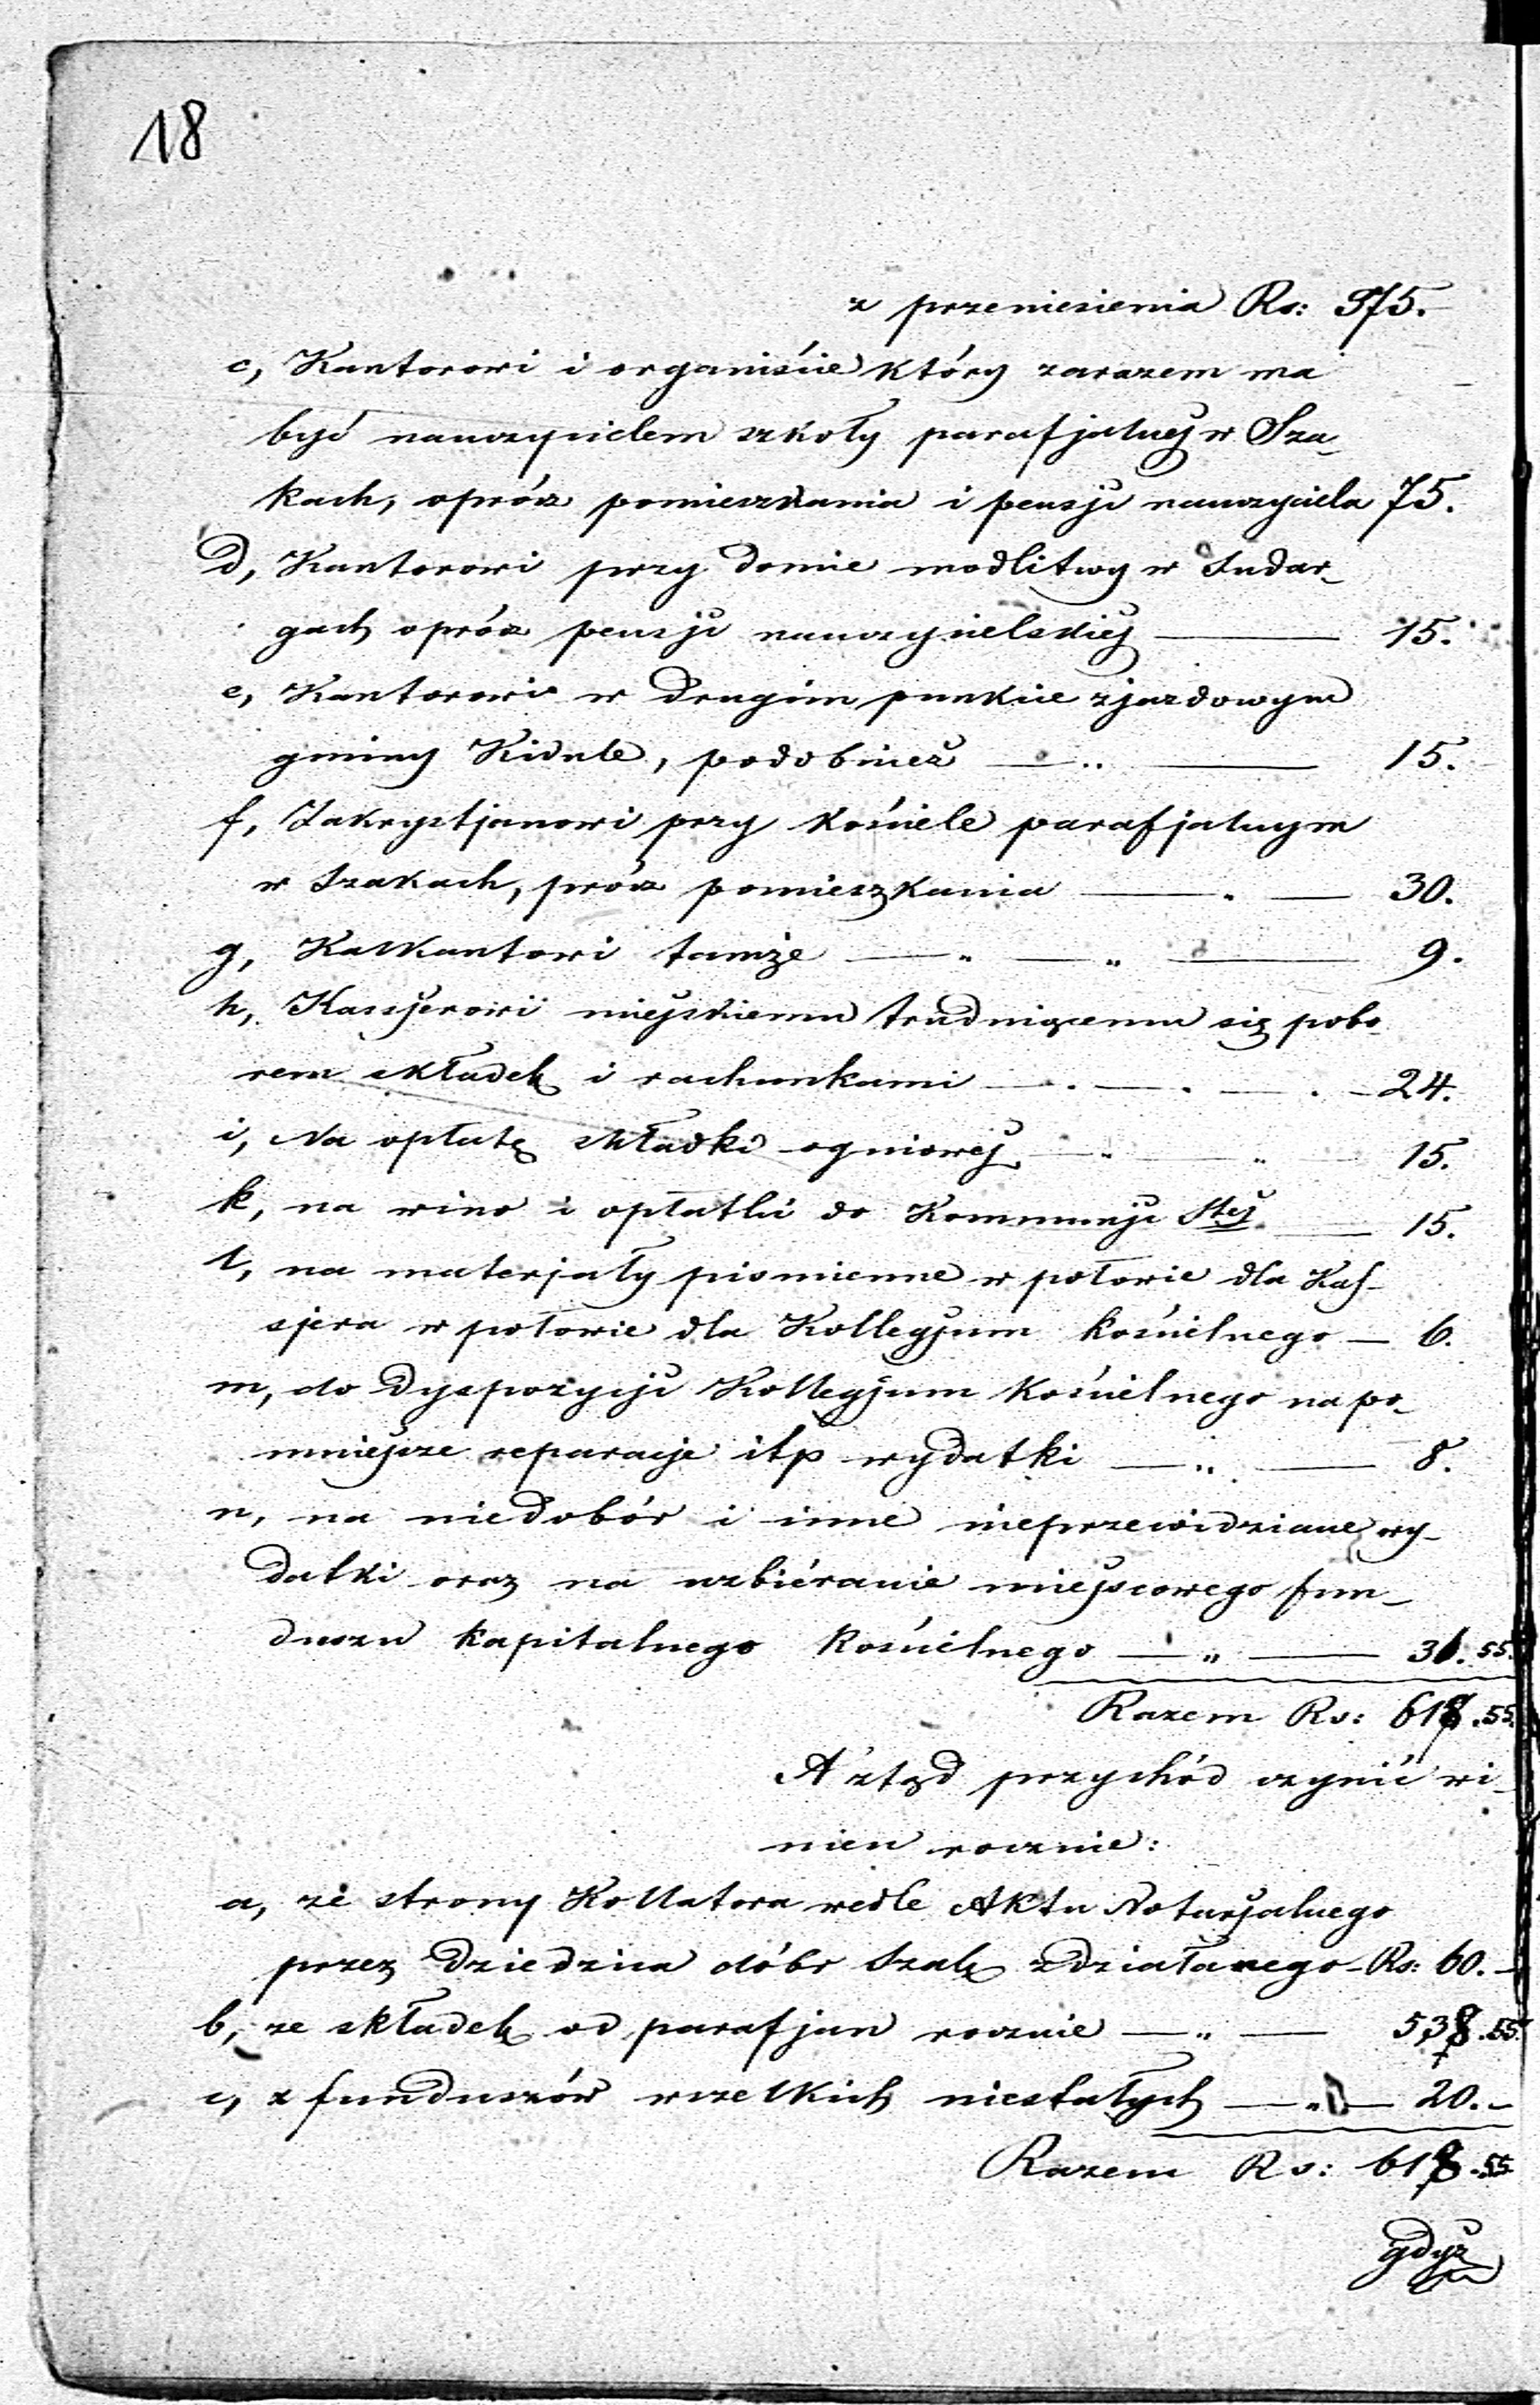 18
z przeniesienia Rs: 375.
c, Kantorowi i organiście który zarazem ma
być nauczycielem szkoły parafjalnej w Sza-
kach, oprócz pomieszkania i pensji nauczyciela 75.
d, Kantorowi przy domie modlitwy w Sudar-
gach oprócz pensji nauczycielskiej — 15.
e, Kantorowi w drugim punkcie zjazdowym
gminy Kidule, podobnież — „ — 15.
f, Zakrystjanowi przy kościele parafjalnym
w Szakach, prócz pomieszkania — „ — 30.
g, Kalkantowi tamże — „ — „ — 9.
h, Kassyerowi miejskiemu trudniącemu się pobo-
rem składek i rachunkami — . — . — . — 24.
i, Na opłatę składki ogniowej — „ — „ — 15.
k, na wino i opłatki do Kommunji Stej — 15.
l, na materjały pismienne w połowie dla Kas-
sjera w połowie dla Kollegjum kościelnego — 6.
m, do dyspozycji Kollegjum Kościelnego na po-
mniejsze reparacje itp wydatki — „ — 8.
n, na niedobór i inne nieprzewidziane wy-
datki oraz na uzbiéranie miejscowego fun-
duszu kapitalnego kościelnego — „ — 31. 55.
Razem Rs: 618.55.
A ztąd przychód czynić wi-
nien rocznie:
a, ze strony Kollatora wedle Aktu Notarjalnego
przez Dziedzica dóbr Szak zdziałanego - Rs: 60. —
b, ze składek od parafjan rocznie — „ — 538.55.
c, z funduszów wszelkich niestałych — „ — 20. -
Razem Rs: 618.55
gdyż